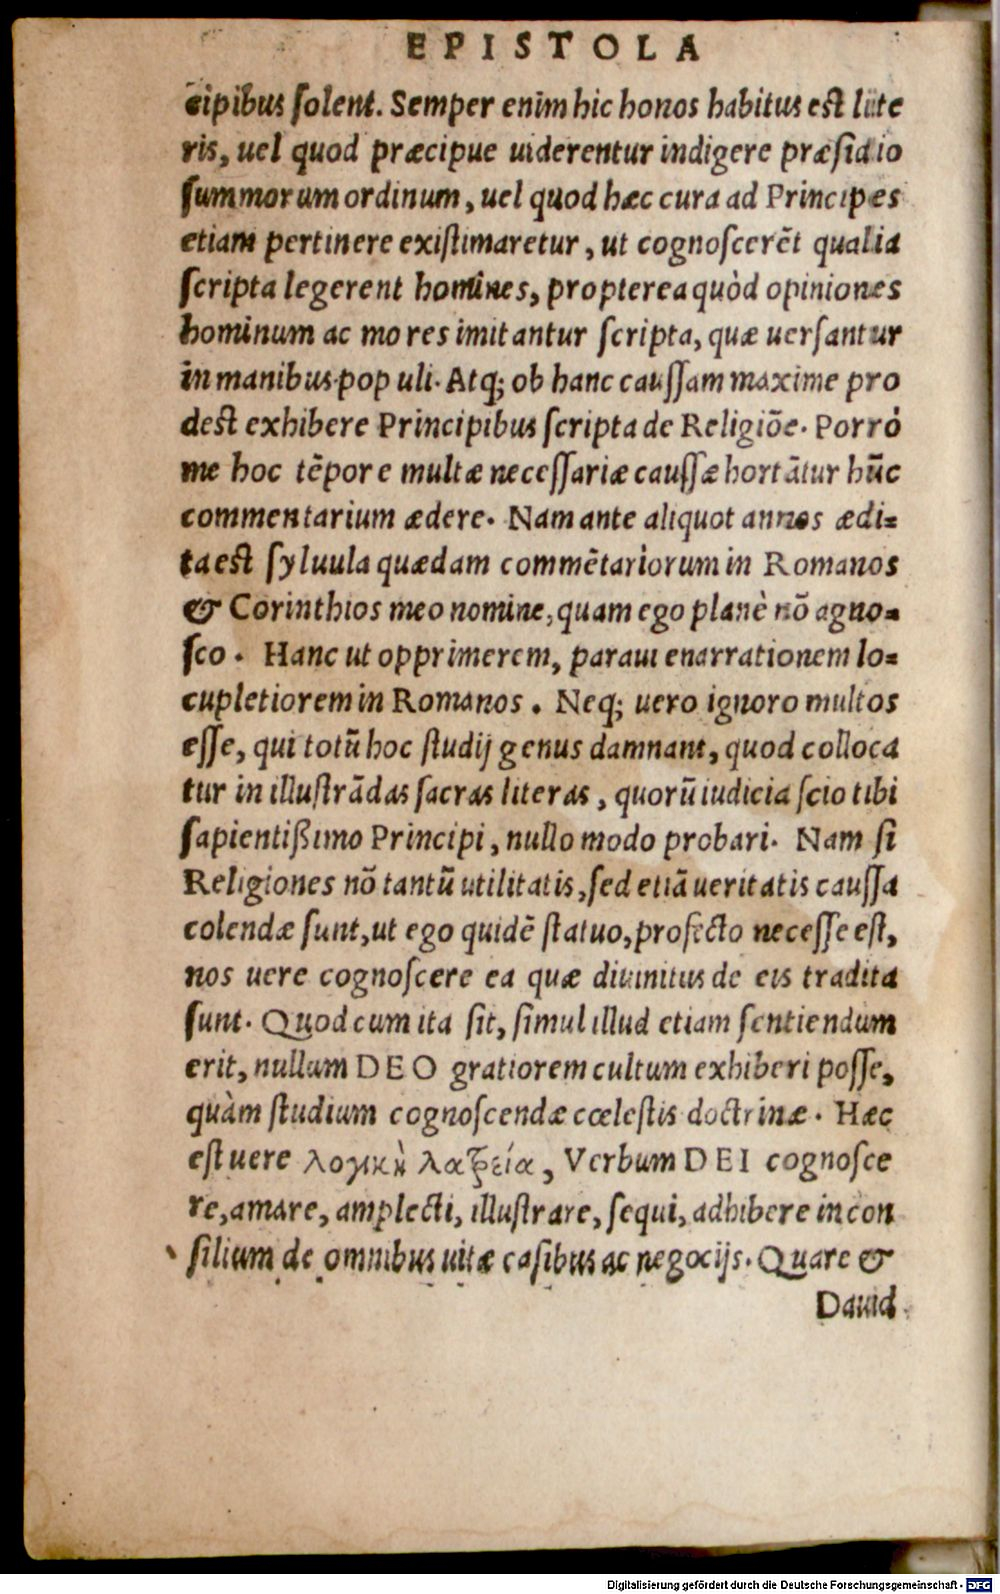 EPISTOLA
cipibus ſolent. Semper enim hic honos habitus eſt lite
ris, uel quod præcipue uiderentur indigere præſidio
ſummorum ordinum, uel quod hæc cura ad Principes
etiam pertinere exiſtimaretur, ut cognoſcerēt qualia
ſcripta legerent homines, propterea quòd opiniones
hominum ac mores imitantur ſcripta, quæ uerſantur
in manibus populi. Atq; ob hanc cauſſam maxime pro
deſt exhibere Principibus ſcripta de Religiōe. Porrò
me hoc tēpore multæ neceſſariæ cauſſæ hortātur hūc
commentarium ædere. Nam ante aliquot annos ædi=
ta eſt ſyluula quædam commētariorum in Romanos
& Corinthios meo nomine, quam ego planè nō agno=
ſco. Hanc ut opprimerem, paraui enarrationem lo=
cupletiorem in Romanos. Neq; uero ignoro multos
eſſe, qui totū hoc ſtudij genus damnant, quod colloca
tur in illuſtrādas ſacras literas, quorū iudicia ſcio tibi
ſapientißimo Principi, nullo modo probari. Nam ſi
Religiones nō tantū utilitatis, ſed etiā ueritatis cauſſa
colendæ ſunt, ut ego quidē ſtatuo, profecto neceſſe eſt,
nos uere cognoſcere ea quæ diuinitus de eis tradita
ſunt. Quod cum ita ſit, ſimul illud etiam ſentiendum
erit, nullum DEO gratiorem cultum exhiberi poſſe,
quàm ſtudium cognoſcendæ cœleſtis doctrinæ. Hæc
eſt uere λογικὴ λατρεία, Verbum DEI cognoſce
re, amare, amplecti, illuſtrare, ſequi, adhibere in con
ſilium de omnibus uitæ caſibus ac negocijs. Quare &
Dauid
Digitalisierung gefördert durch die Deutsche Forschungsgemeinschaft - DFG